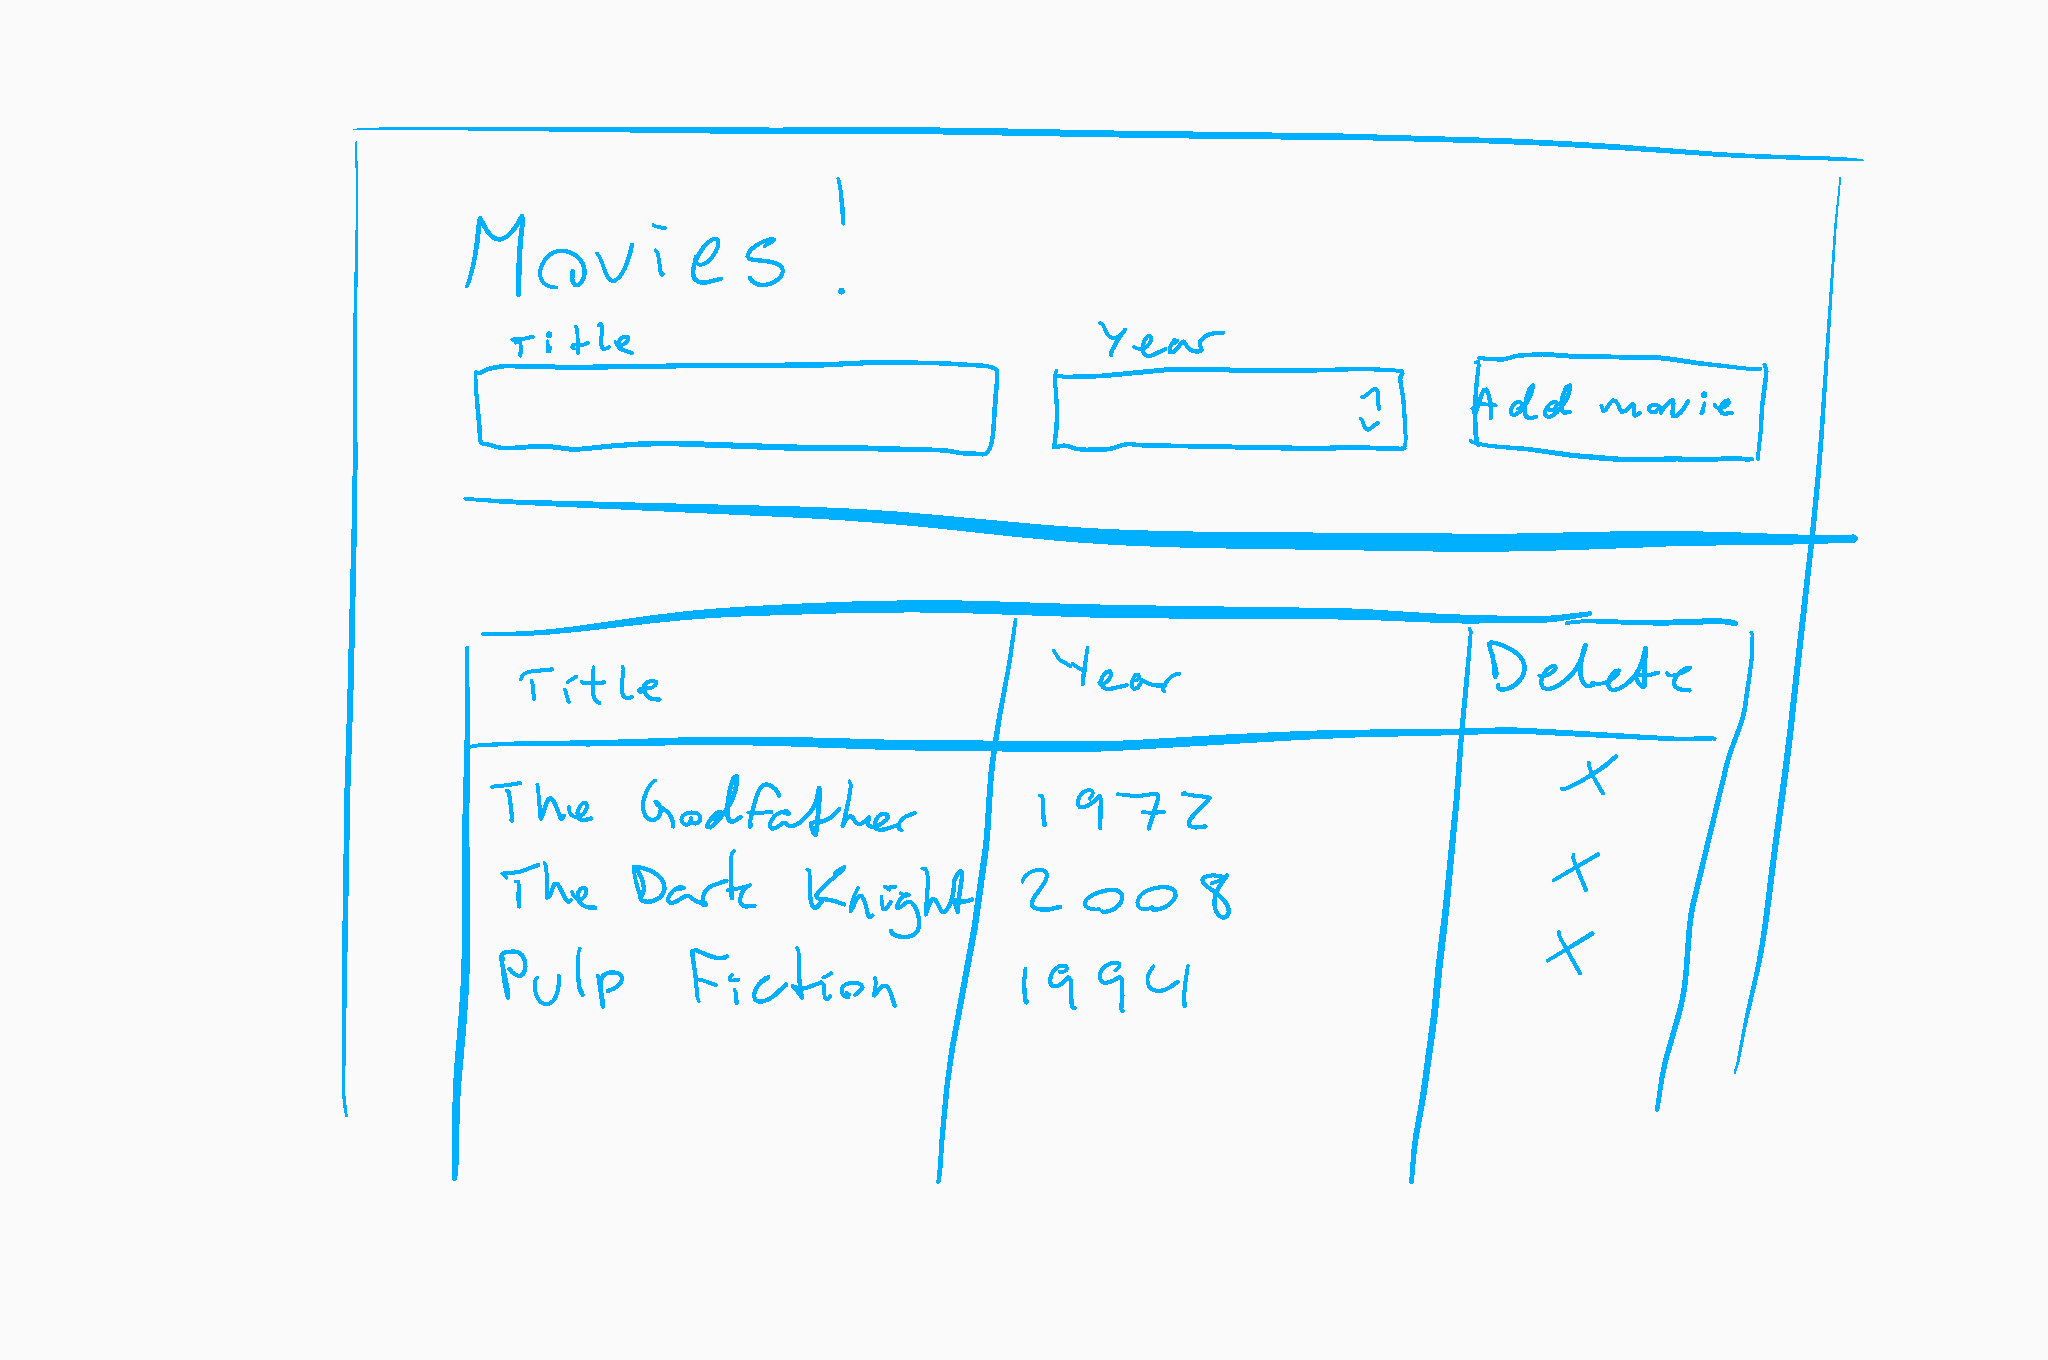 Movies!
Title Year
Add movie
Title Year Delete
The Godfather 1972 X
The Dark Knight 2008 X
Pulp Fiction 1994 X